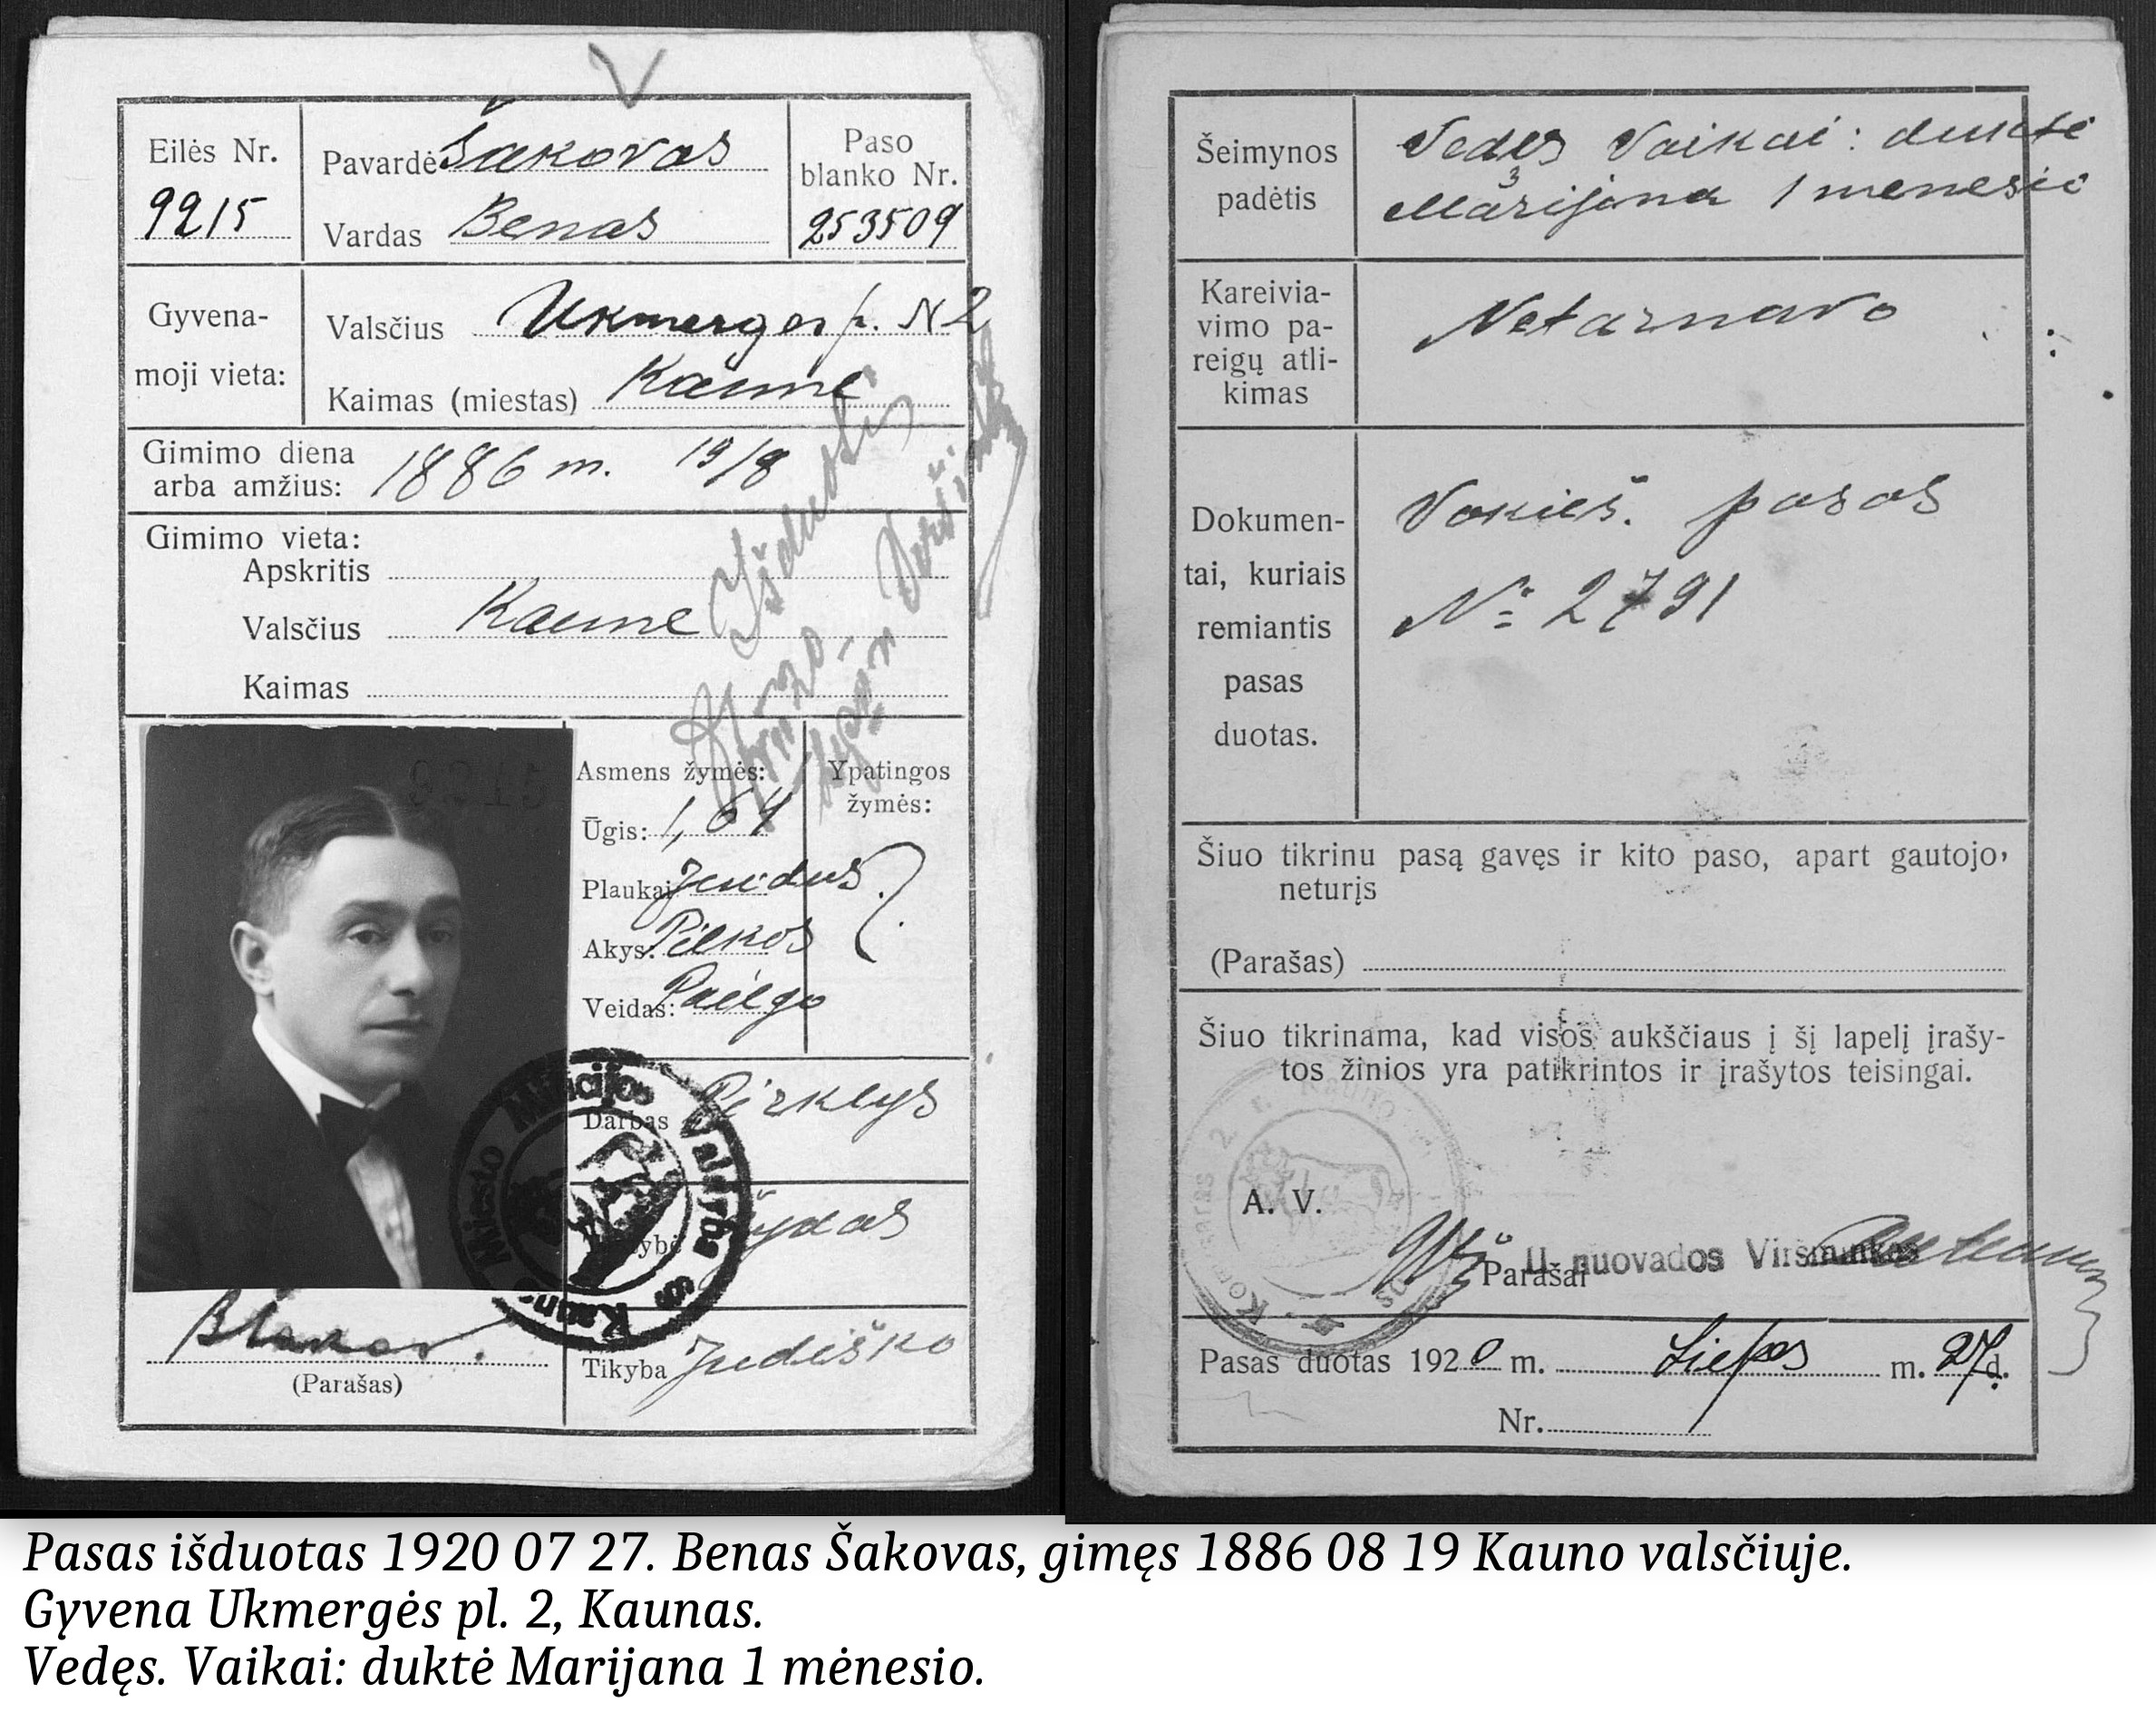 Eilės Nr.
9215
Pavardė Šakovas
Vardas Benas
Paso
blanko Nr.
253509
Gyvena-
moji vieta:
Valsčius Ukmerges p. N 2
Kaimas (miestas) Kaune
Gimimo diena
arba amžius: 1886 m. 19/8
Gimimo vieta:
Apskritis
Valsčius Kaune
Kaimas
Išduotas
Asmens žymės:
Ūgis: 1,64
Plaukai Juodus
Akys: Pilkos
Veidas: Pailgo
Ypatingos
žymės:
Darbas Pirklys
Žydas
Tikyba Judiško
Kauno Miesto Milicijos Valdyba
(Parašas)
Šeimynos
padėtis
Vedęs Vaikai: duktė
Marijona 1 menesio
Kareivia-
vimo pa-
reigų atli-
kimas
Netarnavo
Dokumen-
tai, kuriais
remiantis
pasas
duotas.
Vokieš. pasas
№ 2791
Šiuo tikrinu pasą gavęs ir kito paso, apart gautojo,
neturįs
(Parašas)
Šiuo tikrinama, kad visos aukščiaus į šį lapelį įrašy-
tos žinios yra patikrintos ir įrašytos teisingai.
A. V.
II. nuovados Viršininkas
Parašai
Pasas duotas 1920 m. Liepos m. 27 d.
Nr.
Pasas išduotas 1920 07 27. Benas Šakovas, gimęs 1886 08 19 Kauno valsčiuje.
Gyvena Ukmergės pl. 2, Kaunas.
Vedęs. Vaikai: duktė Marijana 1 mėnesio.